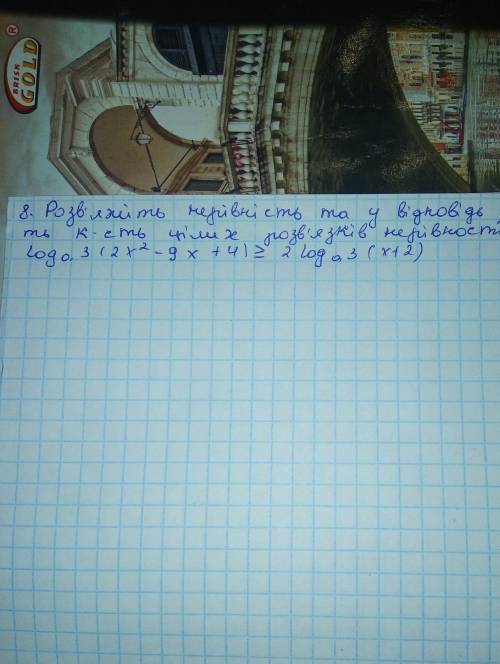 BRISK
GOLD
8. Розв'яжіть нерівність та у відповідь
ть к-сть цілих розв'язків нерівності
log₀,3 (2x² - 9x + 4) ≥ 2 log₀,3 (x+2)